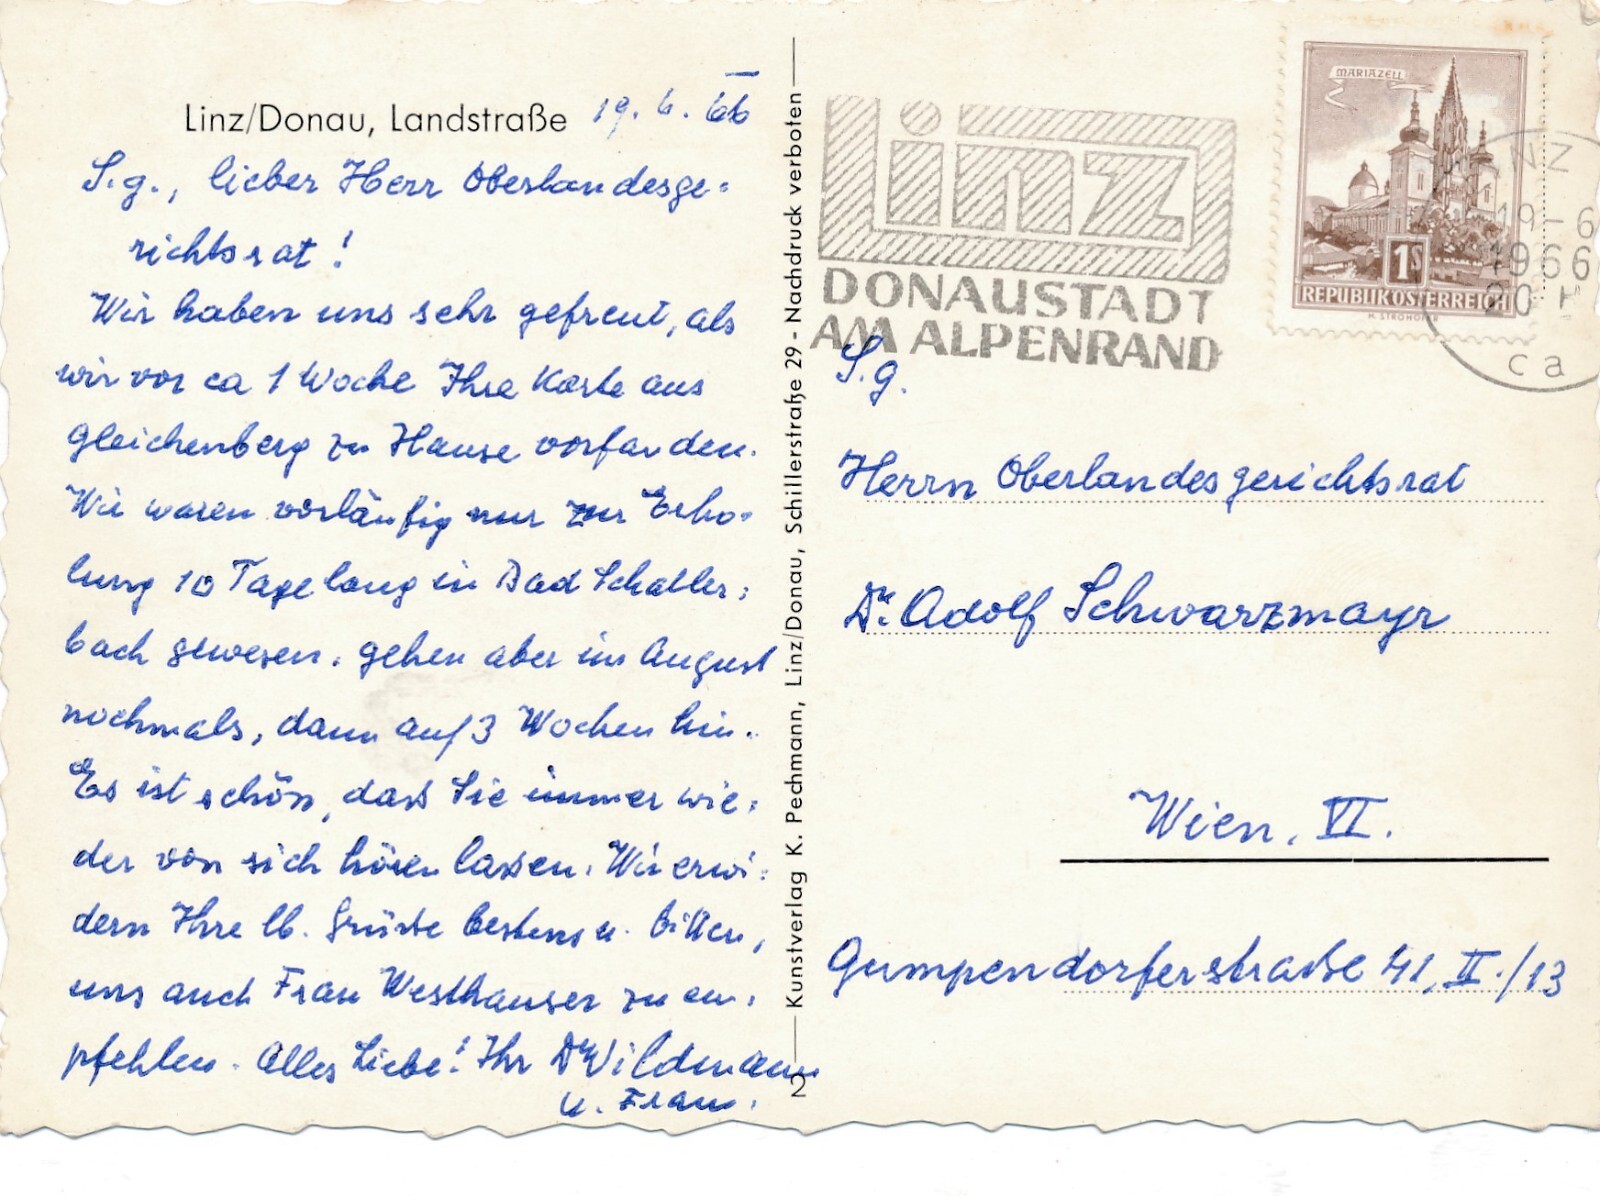 Linz/Donau, Landstraße 19. 6. 66
S.g., lieber Herr Oberlandesge-
richtsrat!
Wir haben uns sehr gefreut, als
wir vor ca 1 Woche Ihre Karte aus
Gleichenberg zu Hause vorfanden.
Wir waren vorläufig nur zur Erho-
lung 10 Tage lang in Bad Schaller-
bach gewesen, gehen aber im August
nochmals, dann auf 3 Wochen hin.
Es ist schön, dass Sie immer wie-
der von sich hören lassen. Wir erwi-
dern Ihre lb. Grüsse bestens u. bitten,
uns auch Frau Westhauser zu em-
pfehlen. Alles Liebe! Ihr Dr Wildmann
u. Frau.
Kunstverlag K. Pechmann, Linz/Donau, Schillerstraße 29 - Nachdruck verboten
2
linz
DONAUSTADT
AM ALPENRAND
MARIAZELL
1S
REPUBLIK ÖSTERREICH
H. STROHOFER
LINZ
19-6
1966
20 H
ca
S.g.
Herrn Oberlandesgerichtsrat
Dr. Adolf Schwarzmayr
Wien, VI.
Gumpendorferstrasse 41, II./13